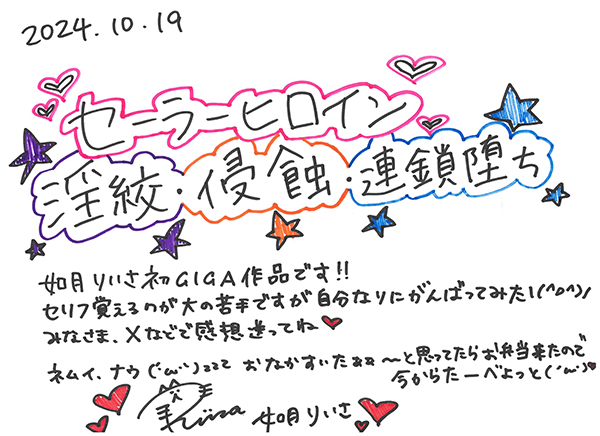 2024.10.19
セーラーヒロイン
淫絞・侵蝕・連鎖堕ち
如月りいさ初GIGA作品です!!
セリフ覚えるのが大の苦手ですが自分なりにがんばってみた!(^o^)/
みなさま、Xなどで感想送ってね♥
ネムイ、ナウ(´・ω・`)zzz おなかすいたぁぁ〜と思ってたらお弁当来たので
今からたーべよっと(´・ω・`)♥
Riisa 如月りいさ